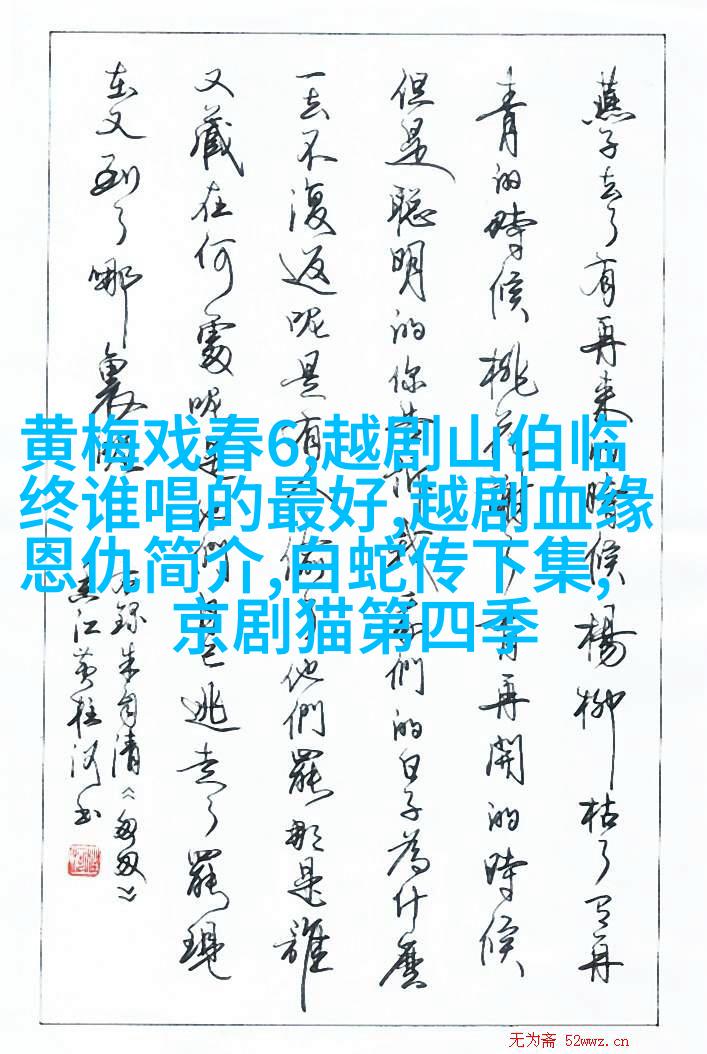 燕子去了有再来的時候楊柳枯了有再
青的時候桃花謝了有再開的時候
但是聪明的你告訴我我們的日子為什麽
一去不復返呢是有人偷了他們罷那是誰
又藏在何處呢是他們自己逃走了罷現
在又到了哪裏呢
録朱自清《匆匆》
江黄柱河书
黄梅戏春6,越剧山伯临
终谁唱的最好,越剧血缘
恩仇简介,白蛇传下集,
京剧猫第四季
无为斋 52wwz.cn